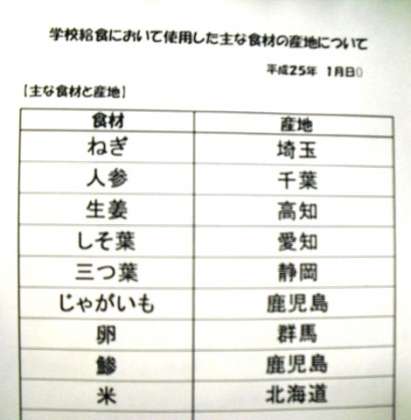 学校給食において使用した主な食材の産地について
平成25年 1月日()
【主な食材と産地】
食材 産地
ねぎ 埼玉
人参 千葉
生姜 高知
しそ葉 愛知
三つ葉 静岡
じゃがいも 鹿児島
卵 群馬
鯵 鹿児島
米 北海道